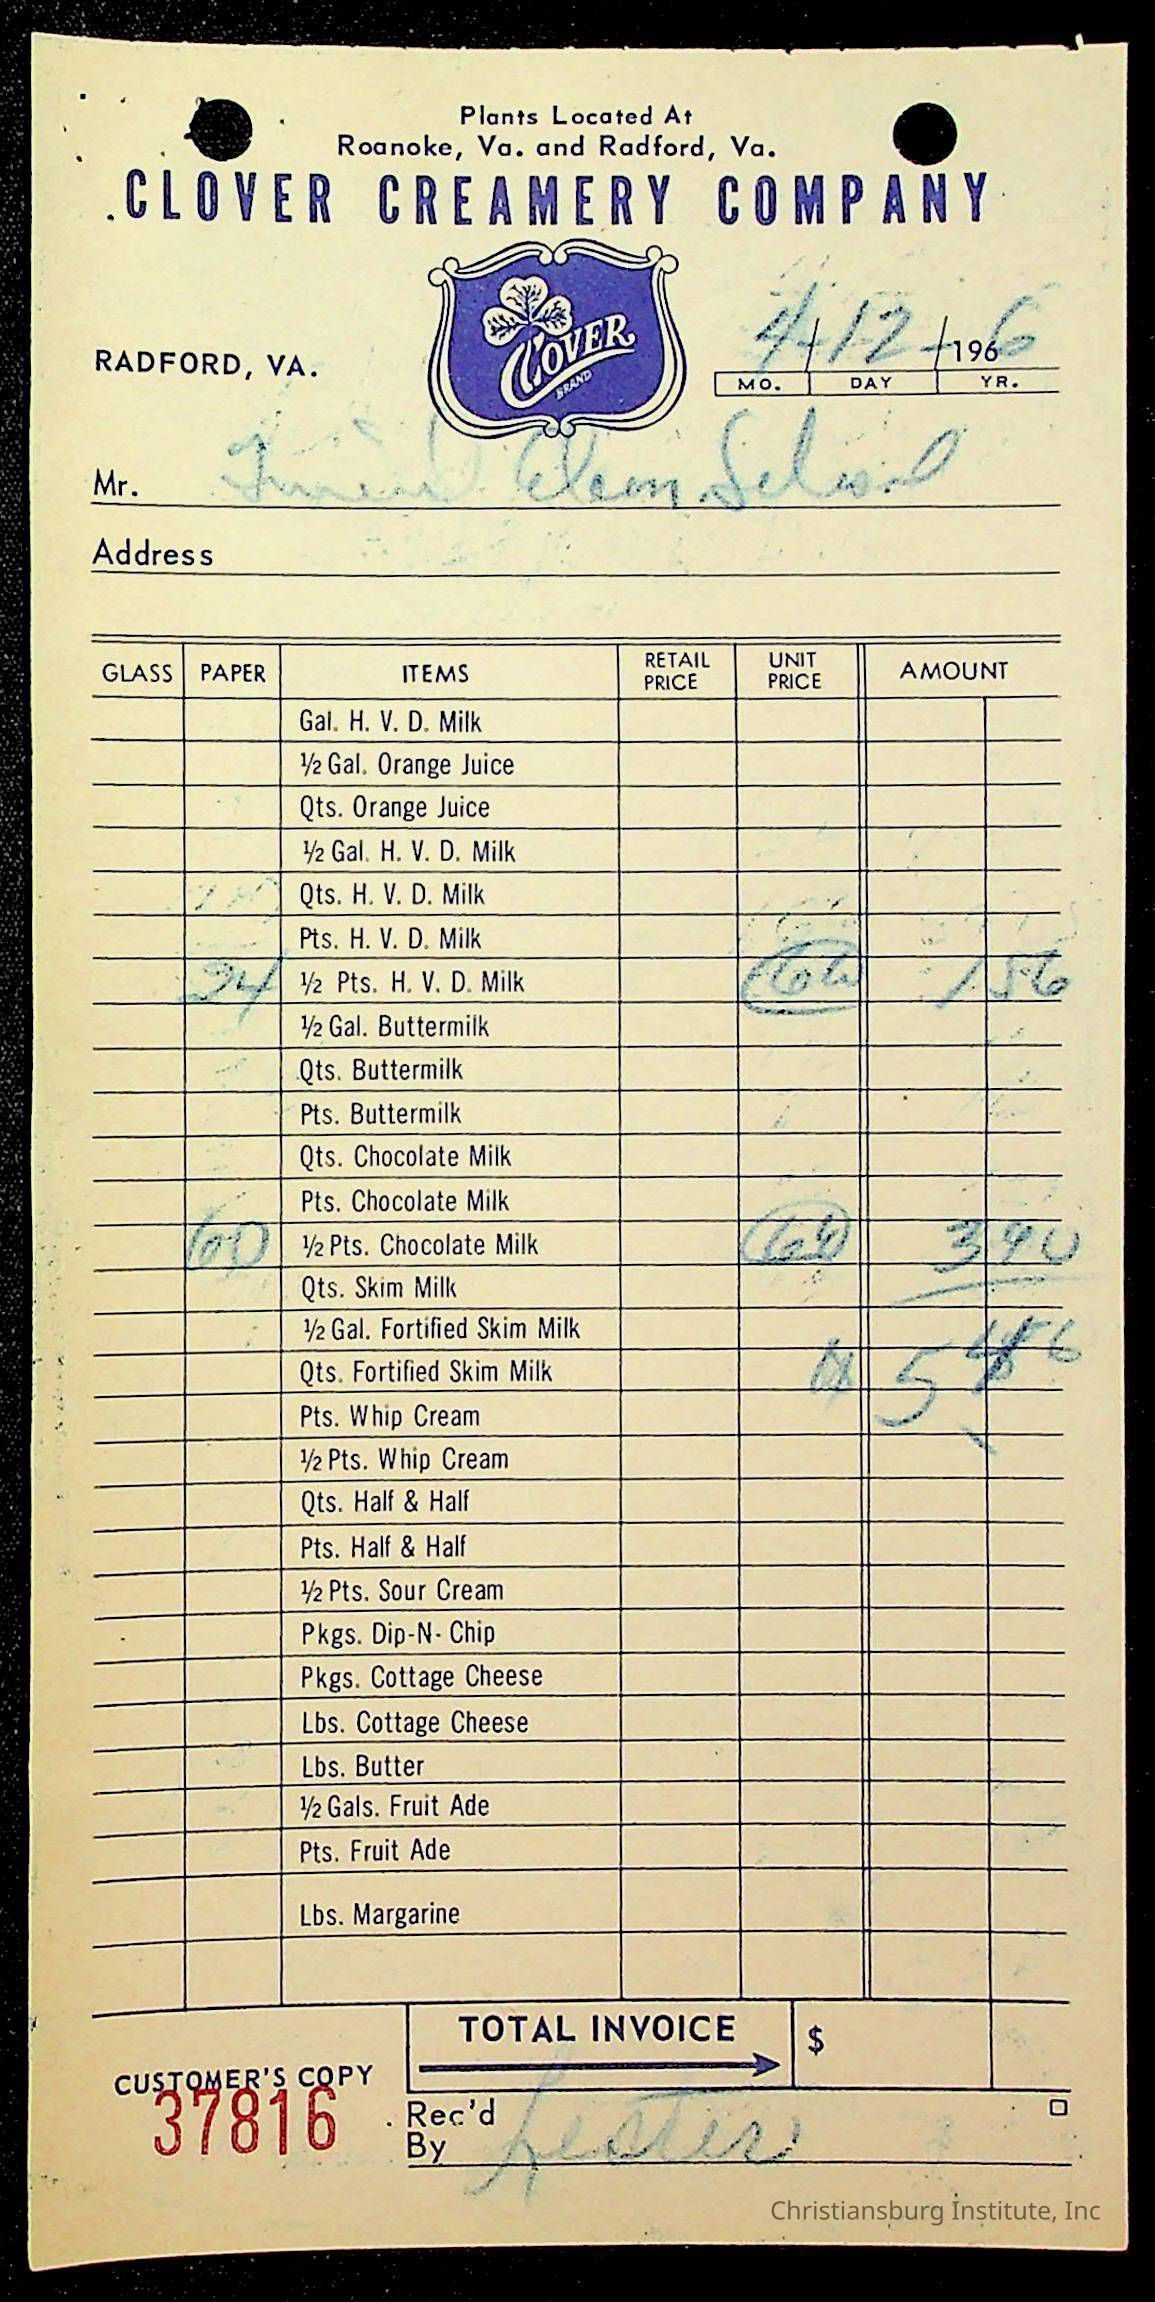 Plants Located At
Roanoke, Va. and Radford, Va.
CLOVER CREAMERY COMPANY
CLOVER
BRAND
RADFORD, VA.
4-12-1966
MO. DAY YR.
Mr. Elem School
Address
GLASS PAPER ITEMS RETAIL PRICE UNIT PRICE AMOUNT
Gal. H. V. D. Milk
½ Gal. Orange Juice
Qts. Orange Juice
½ Gal. H. V. D. Milk
Qts. H. V. D. Milk
Pts. H. V. D. Milk
24 ½ Pts. H. V. D. Milk 1 56
½ Gal. Buttermilk
Qts. Buttermilk
Pts. Buttermilk
Qts. Chocolate Milk
Pts. Chocolate Milk
60 ½ Pts. Chocolate Milk 3 90
Qts. Skim Milk
½ Gal. Fortified Skim Milk
Qts. Fortified Skim Milk 5 46
Pts. Whip Cream
½ Pts. Whip Cream
Qts. Half & Half
Pts. Half & Half
½ Pts. Sour Cream
Pkgs. Dip-N-Chip
Pkgs. Cottage Cheese
Lbs. Cottage Cheese
Lbs. Butter
½ Gals. Fruit Ade
Pts. Fruit Ade
Lbs. Margarine
TOTAL INVOICE $
CUSTOMER'S COPY
37816
Rec'd
By Lester
Christiansburg Institute, Inc